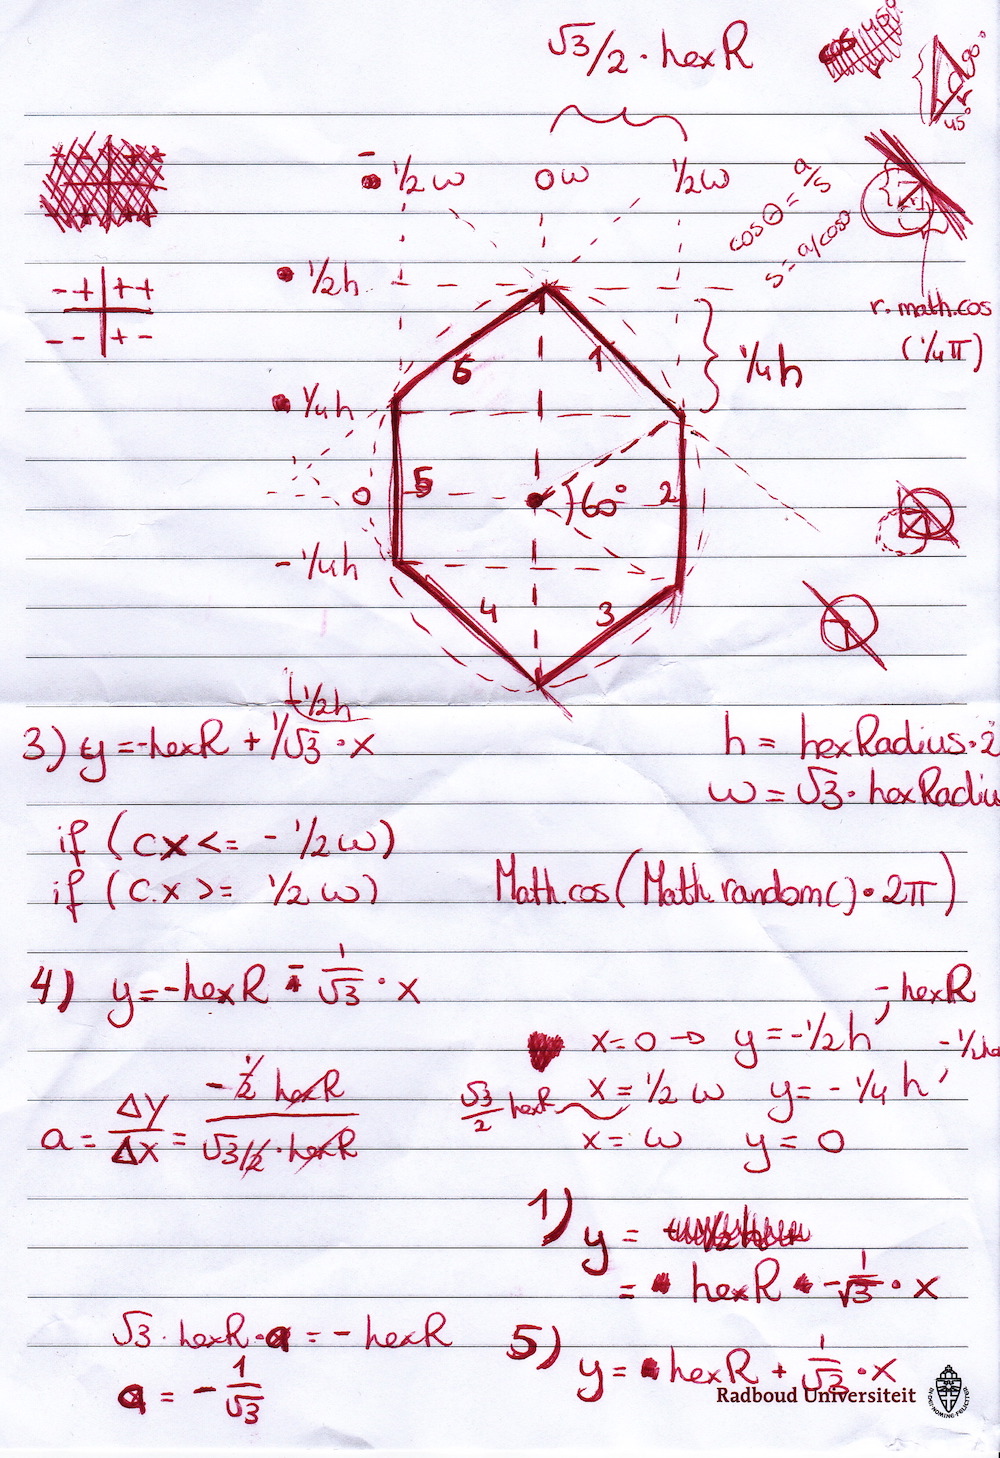 √3/2 · hexR
90°
r
45°
- 1/2 w
0 w
1/2 w
cos Θ = a/s
s = a/cos Θ
- + | + +
- - | + -
1/2 h
r. math.cos
(1/4 π)
6
1
1/4 h
1/4 h
0
5
60°
2
- 1/4 h
4
3
3) y = -hexR + 1/√3 · x
h = hexRadius · 2
w = √3 · hexRadiu
if (cx <= - 1/2 w)
if (c.x >= 1/2 w)
Math.cos(Math.random() · 2π)
4) y = -hexR - 1/√3 · x
- hexR
x = 0 → y = - 1/2 h
√3/2 hexR
x = 1/2 w y = - 1/4 h
x = w y = 0
a = Δy/Δx = - 1/2 hexR / √3/2 · hexR
1) y =
= hexR - 1/√3 · x
√3 · hexR · a = - hexR
a = - 1/√3
5) y = hexR + 1/√3 · x
Radboud Universiteit